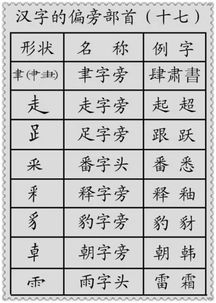 汉字的偏旁部首（十七）
形状 名 称 例 字
聿(肀⺻) 聿字旁 肆肃書
走 走字旁 起 超
𧾷 足字旁 跟 跃
釆 番字头 番 悉
釆 释字旁 释 釉
豸 豹字旁 豹 豺
𠦝 朝字旁 朝 韩
⻗ 雨字头 雷 霜